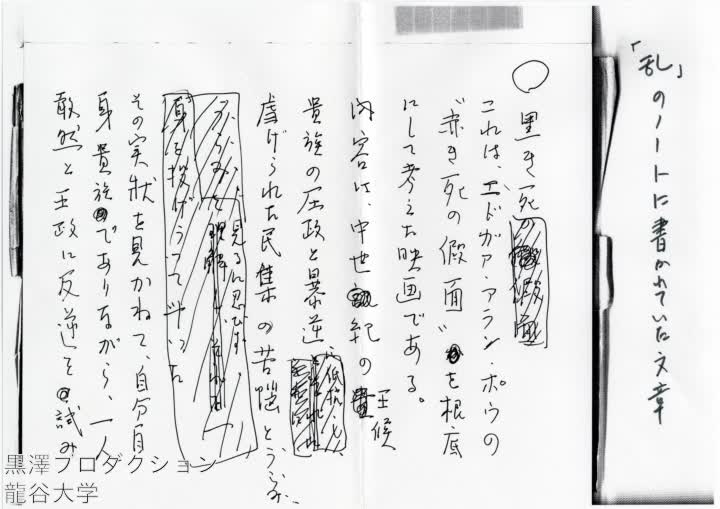 「乱」のノートに書かれていた文章
黒き死の仮面
これは、エドガァ・アラン・ポウの
"赤き死の仮面"を根底
にして考えた映画である。
内容は、中世紀の王侯
貴族の圧政と暴逆、
虐げられた民集の苦悩と、
見るに忍びず、
身を投げうって斗った
その実状を見かねて、自分自
身貴族でありながら、一人
敢然と王政に反逆を試み
黒澤プロダクション
龍谷大学